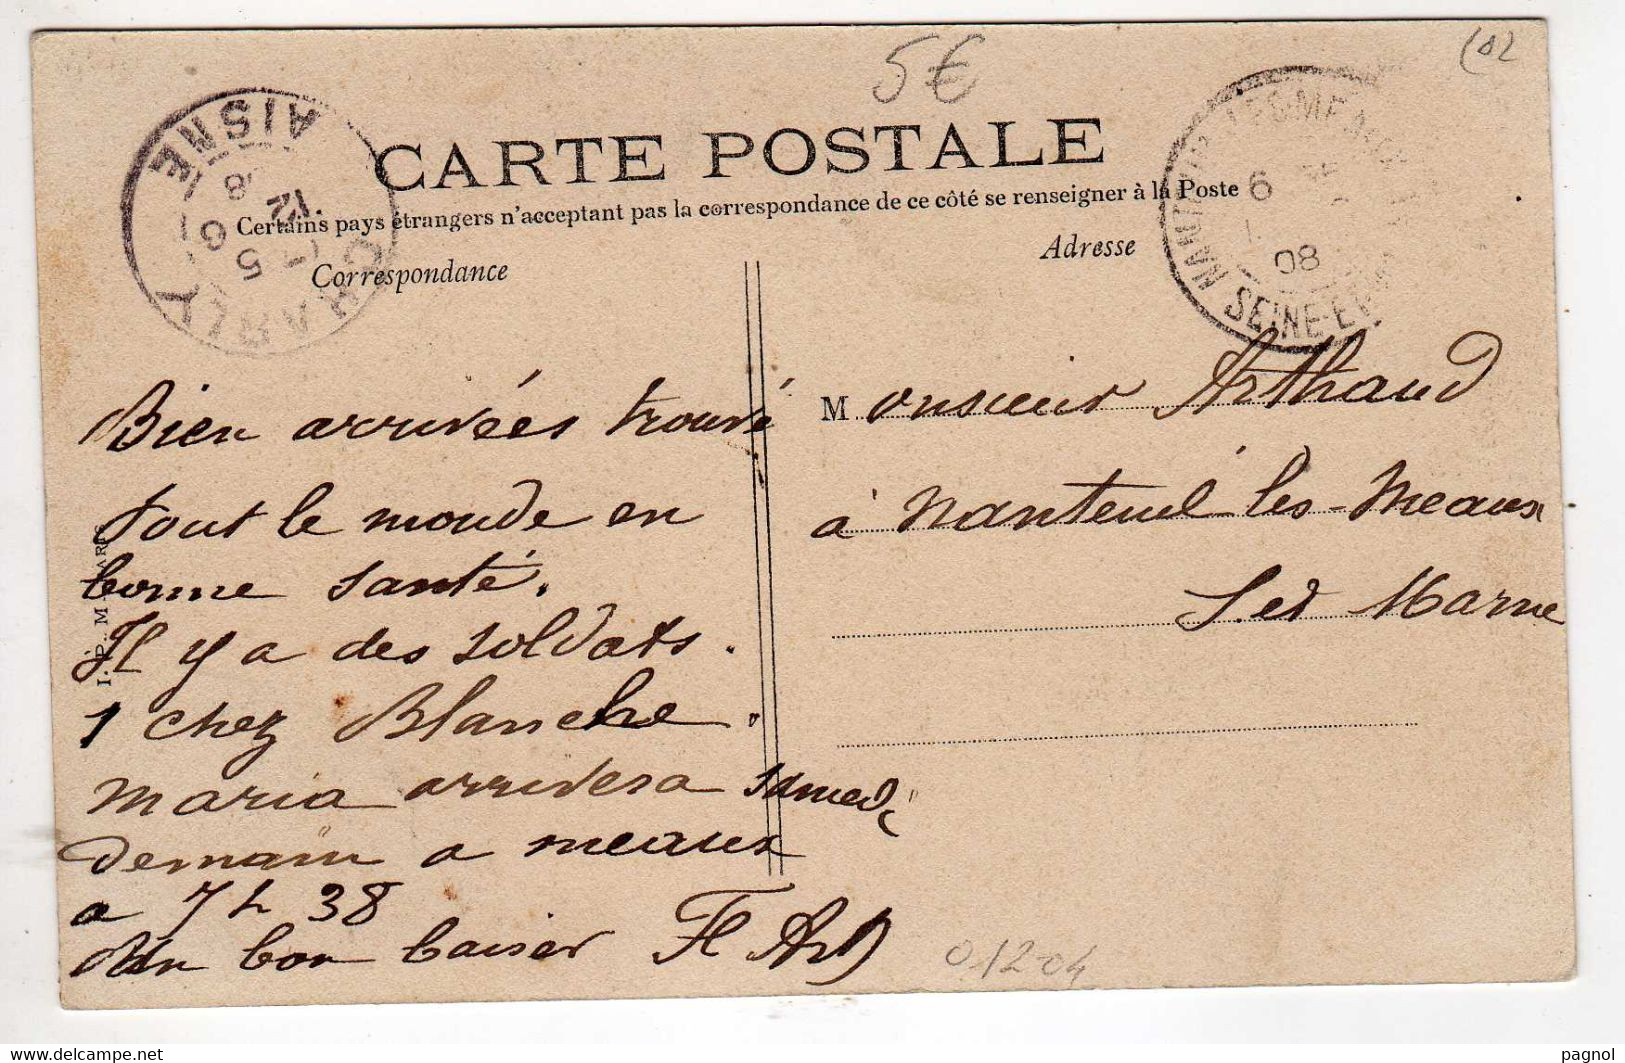 5€
CARTE POSTALE
Certains pays étrangers n'acceptent pas la correspondance de ce côté se renseigner à la Poste
Correspondance
Adresse
CHARLY
AISNE
SEINE-ET-M
6
08
Bien arrivées trouvé
tout le monde en
bonne santé.
Il y a des soldats.
1 chez Blanche.
Maria arrivera samedi
demain a meaux
a 7 h 38
Un bon baiser Fl Art
Monsieur Arthaud
à Nanteuil les-Meaux
S. et Marne
01204
delcampe.net
pagnol